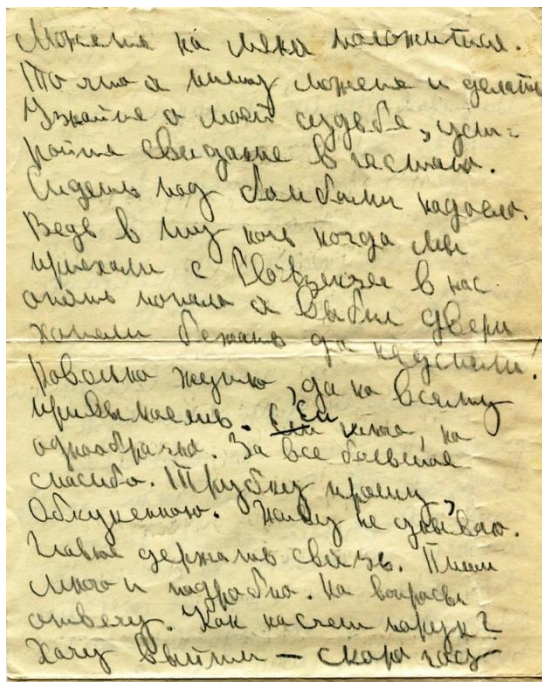 Можете на меня положиться.
То что я пишу можете и делать
Узнайте о моей судьбе, уст-
ройте свидание в гестапо.
Сидеть под бомбами надоело.
Ведь в ту ночь когда мы
приехали с в нас
опять попала я выбил двери
хотели бежать да не успели!
жутко, да ко всему
привыкаешь. Ем, но
однообразно. За все большое
спасибо. Трубку прошу,
обкуренную. Живу не унываю.
Главное держать связь. Пиши
много и подробно. На вопросы
отвечу. Как насчет порук?
Хочу выйти — скоро